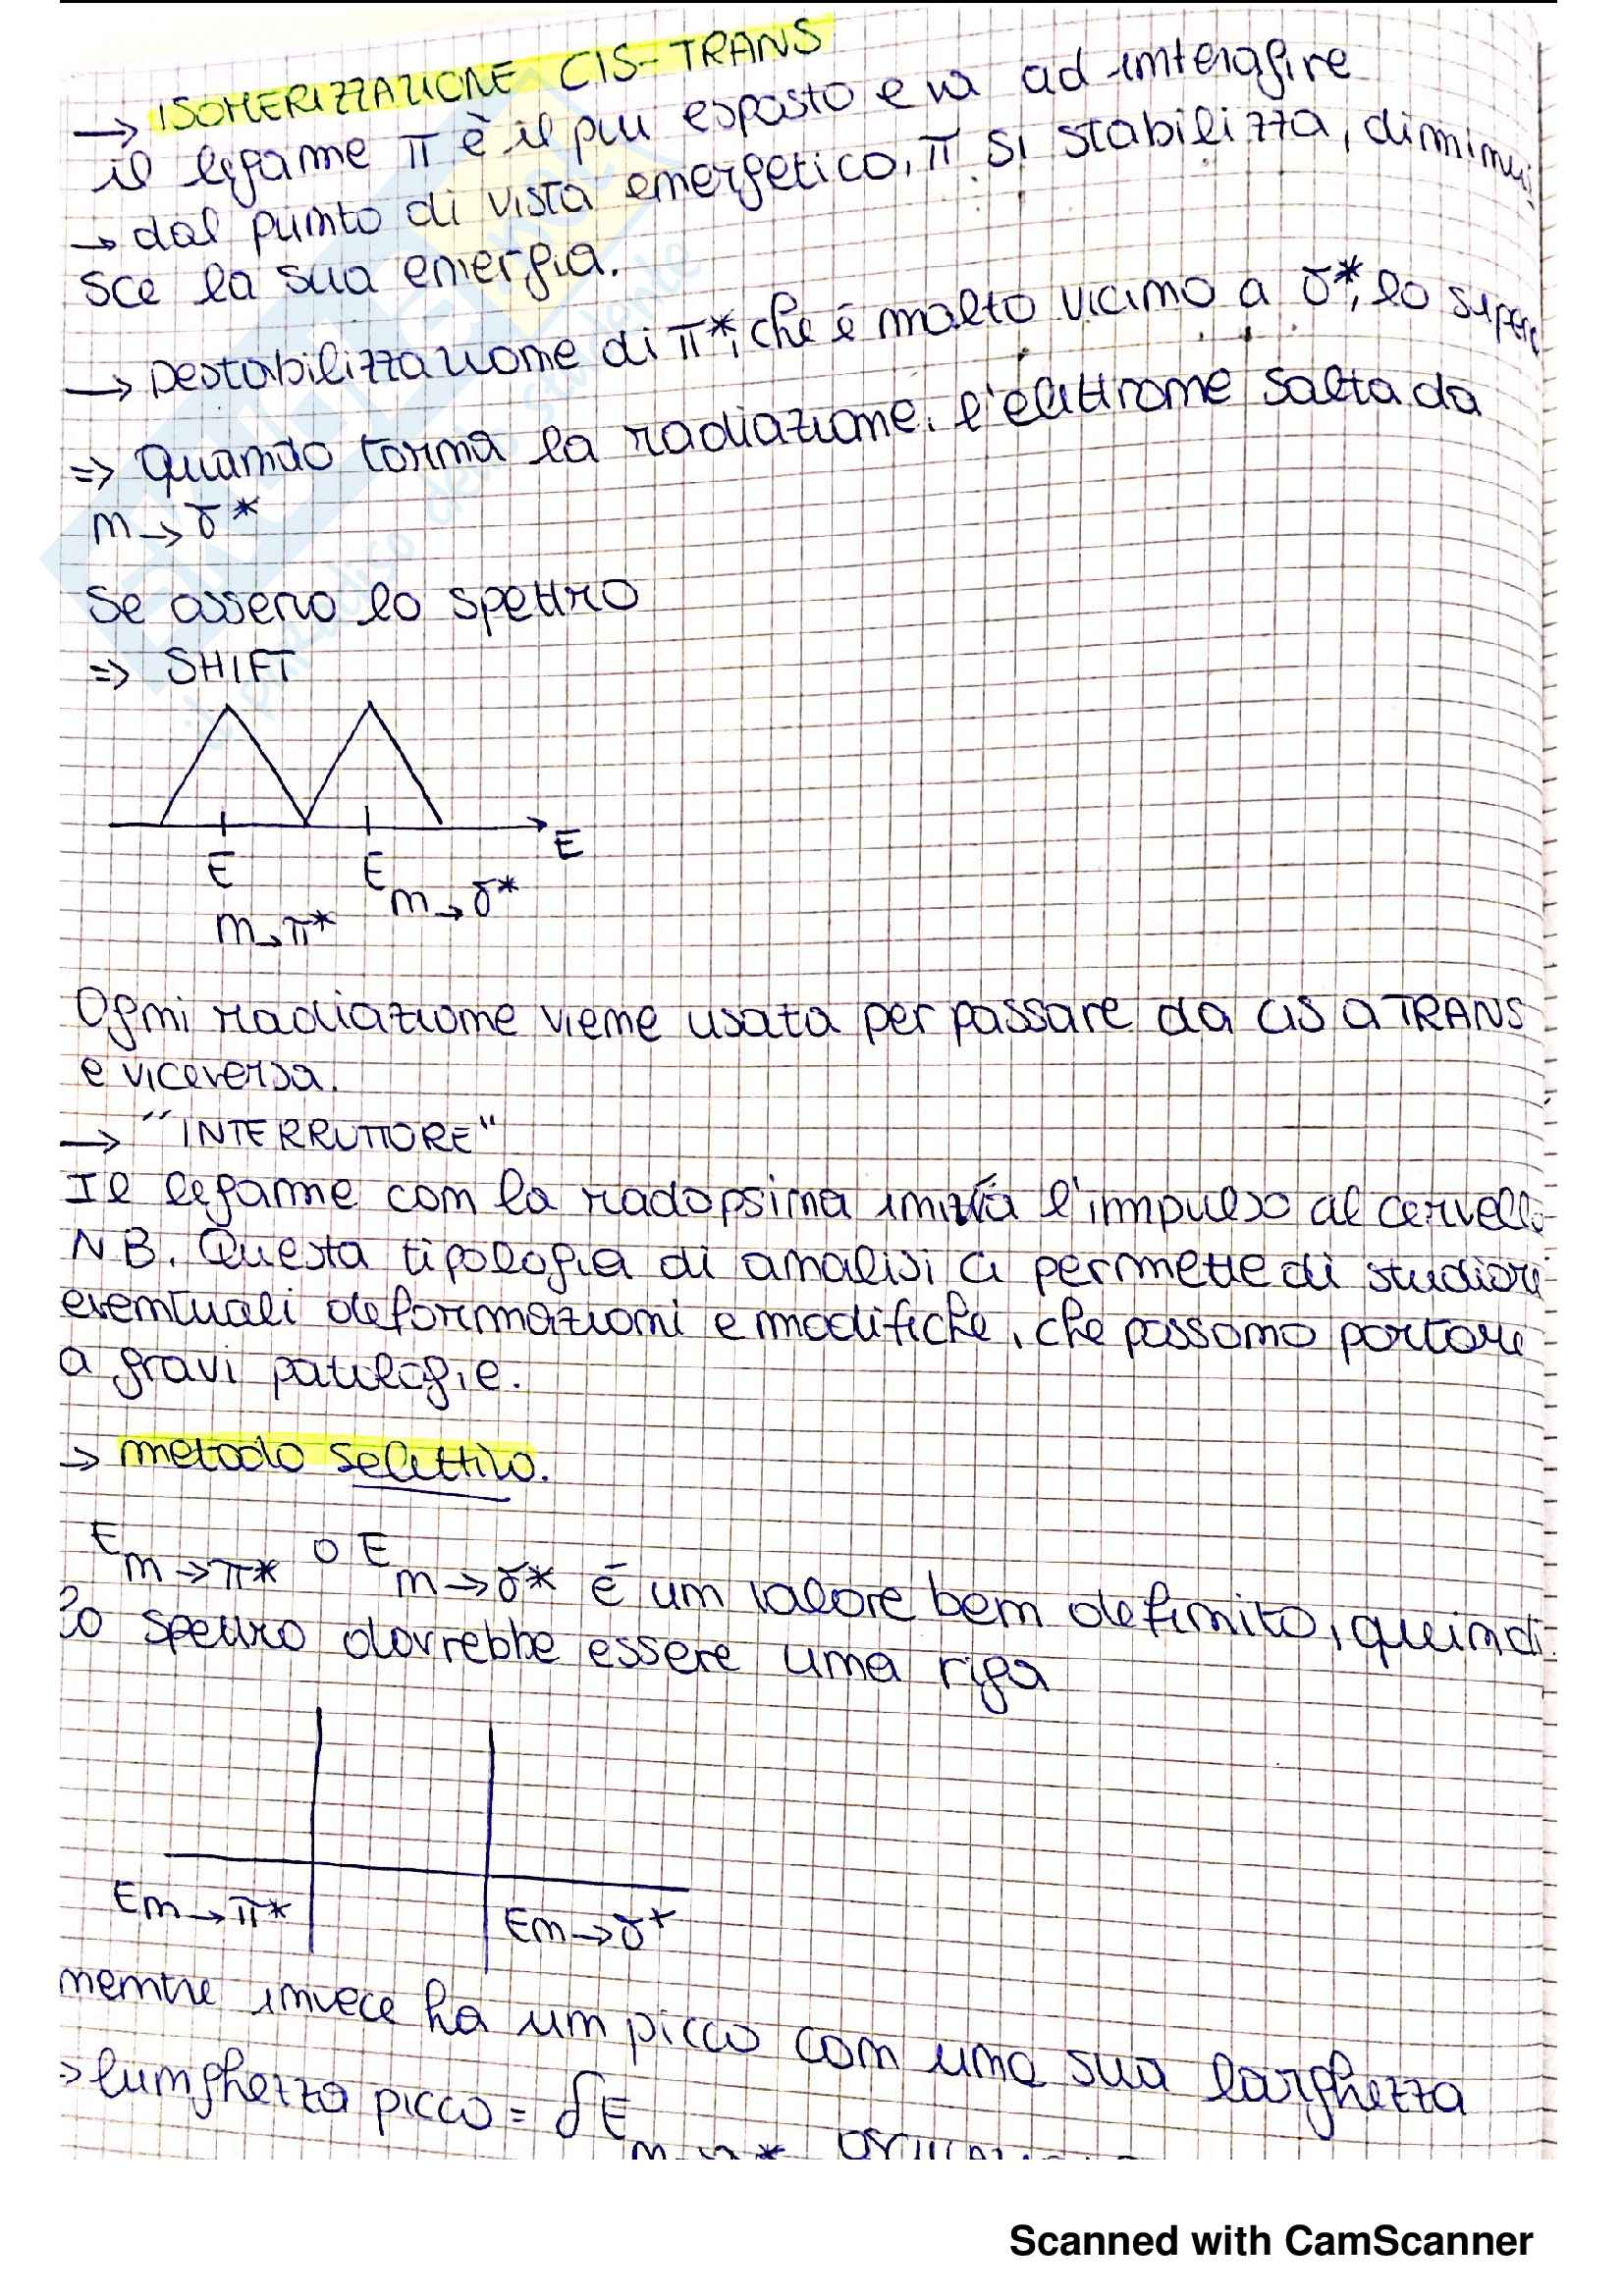 → ISOMERIZZAZIONE CIS-TRANS
il legame π è il più esposto e va ad interagire
→ dal punto di vista energetico, π si stabilizza, diminui
sce la sua energia.
→ Destabilizzazione di π*, che è molto vicino a σ*, lo supera
=> Quando torna la radiazione, l'elettrone salta da
n → σ*
Se osservo lo spettro
=> SHIFT
E
E n→π*
E n→σ*
Ogni radiazione viene usata per passare da CIS a TRANS
e viceversa.
→ "INTERRUTTORE"
Il legame con la radopsina invia l'impulso al cervello
N.B. Questa tipologia di analisi ci permette di studiare
eventuali deformazioni e modifiche, che possono portare
a gravi patologie.
→ metodo selettivo.
E n→π* o E n→σ* è un valore ben definito, quindi
lo spettro dovrebbe essere una riga
En→π*
En→σ*
mentre invece ha un picco con una sua larghezza
=> lunghezza picco = δE
Scanned with CamScanner